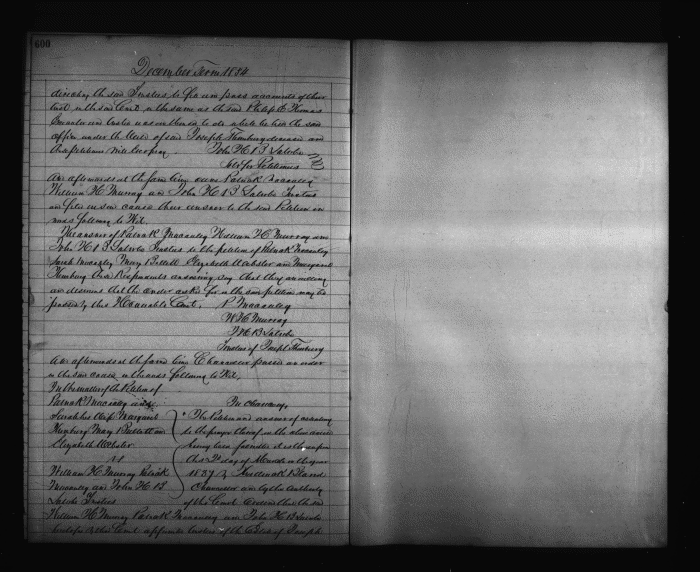 600
December Term 1834
directing the said Trustees to from pass accounts of their
trust in the said Court in the same as the said Philip E Thomas
Executor and trustee is authorized to do while he held the said
office under the Will of said Joseph Thornburg deceased and
And petitioners will ever pray
John H B Latrobe
Sol for Petitioners
And afterwards at the same time came Patrick Macauley
William H Murray and John H B Latrobe Trustees
and filed in said cause their answer to the said Petition in
words following to Wit,
The answer of Patrick Macauley William H Murray and
John H B Latrobe Trustees to the petition of Patrick Macauley
Sarah Macauley Mary Elizabeth Webster and Margaret
Thornburg These Respondents answering say that they are willing
and desirous that the order asked for in the said petition may be
passed by this Honourable Court.
P. Macauley
W H Murray
J H B Latrobe
Trustees of Joseph Thornburg
And afterwards at the same time Chancellor passed an order
in the said cause in words following to Wit,
In the matter of the Petition of
Patrick Macauley and
Sarah his wife Margaret
Thornburg Mary and
Elizabeth Webster
vs
William H Murray Patrick
Macauley and John H B
Latrobe Trustees
In Chancery,
The Petition and answer of
to the prayer thereof in the above cause
having been submitted it is thereupon
this day of in the year
183 by Theodorick Bland
Chancellor and by the authority
of this Court Ordered that the said
William H Murray Patrick Macauley and John H B Latrobe
by this Court appointed trustees of the Estate of Joseph